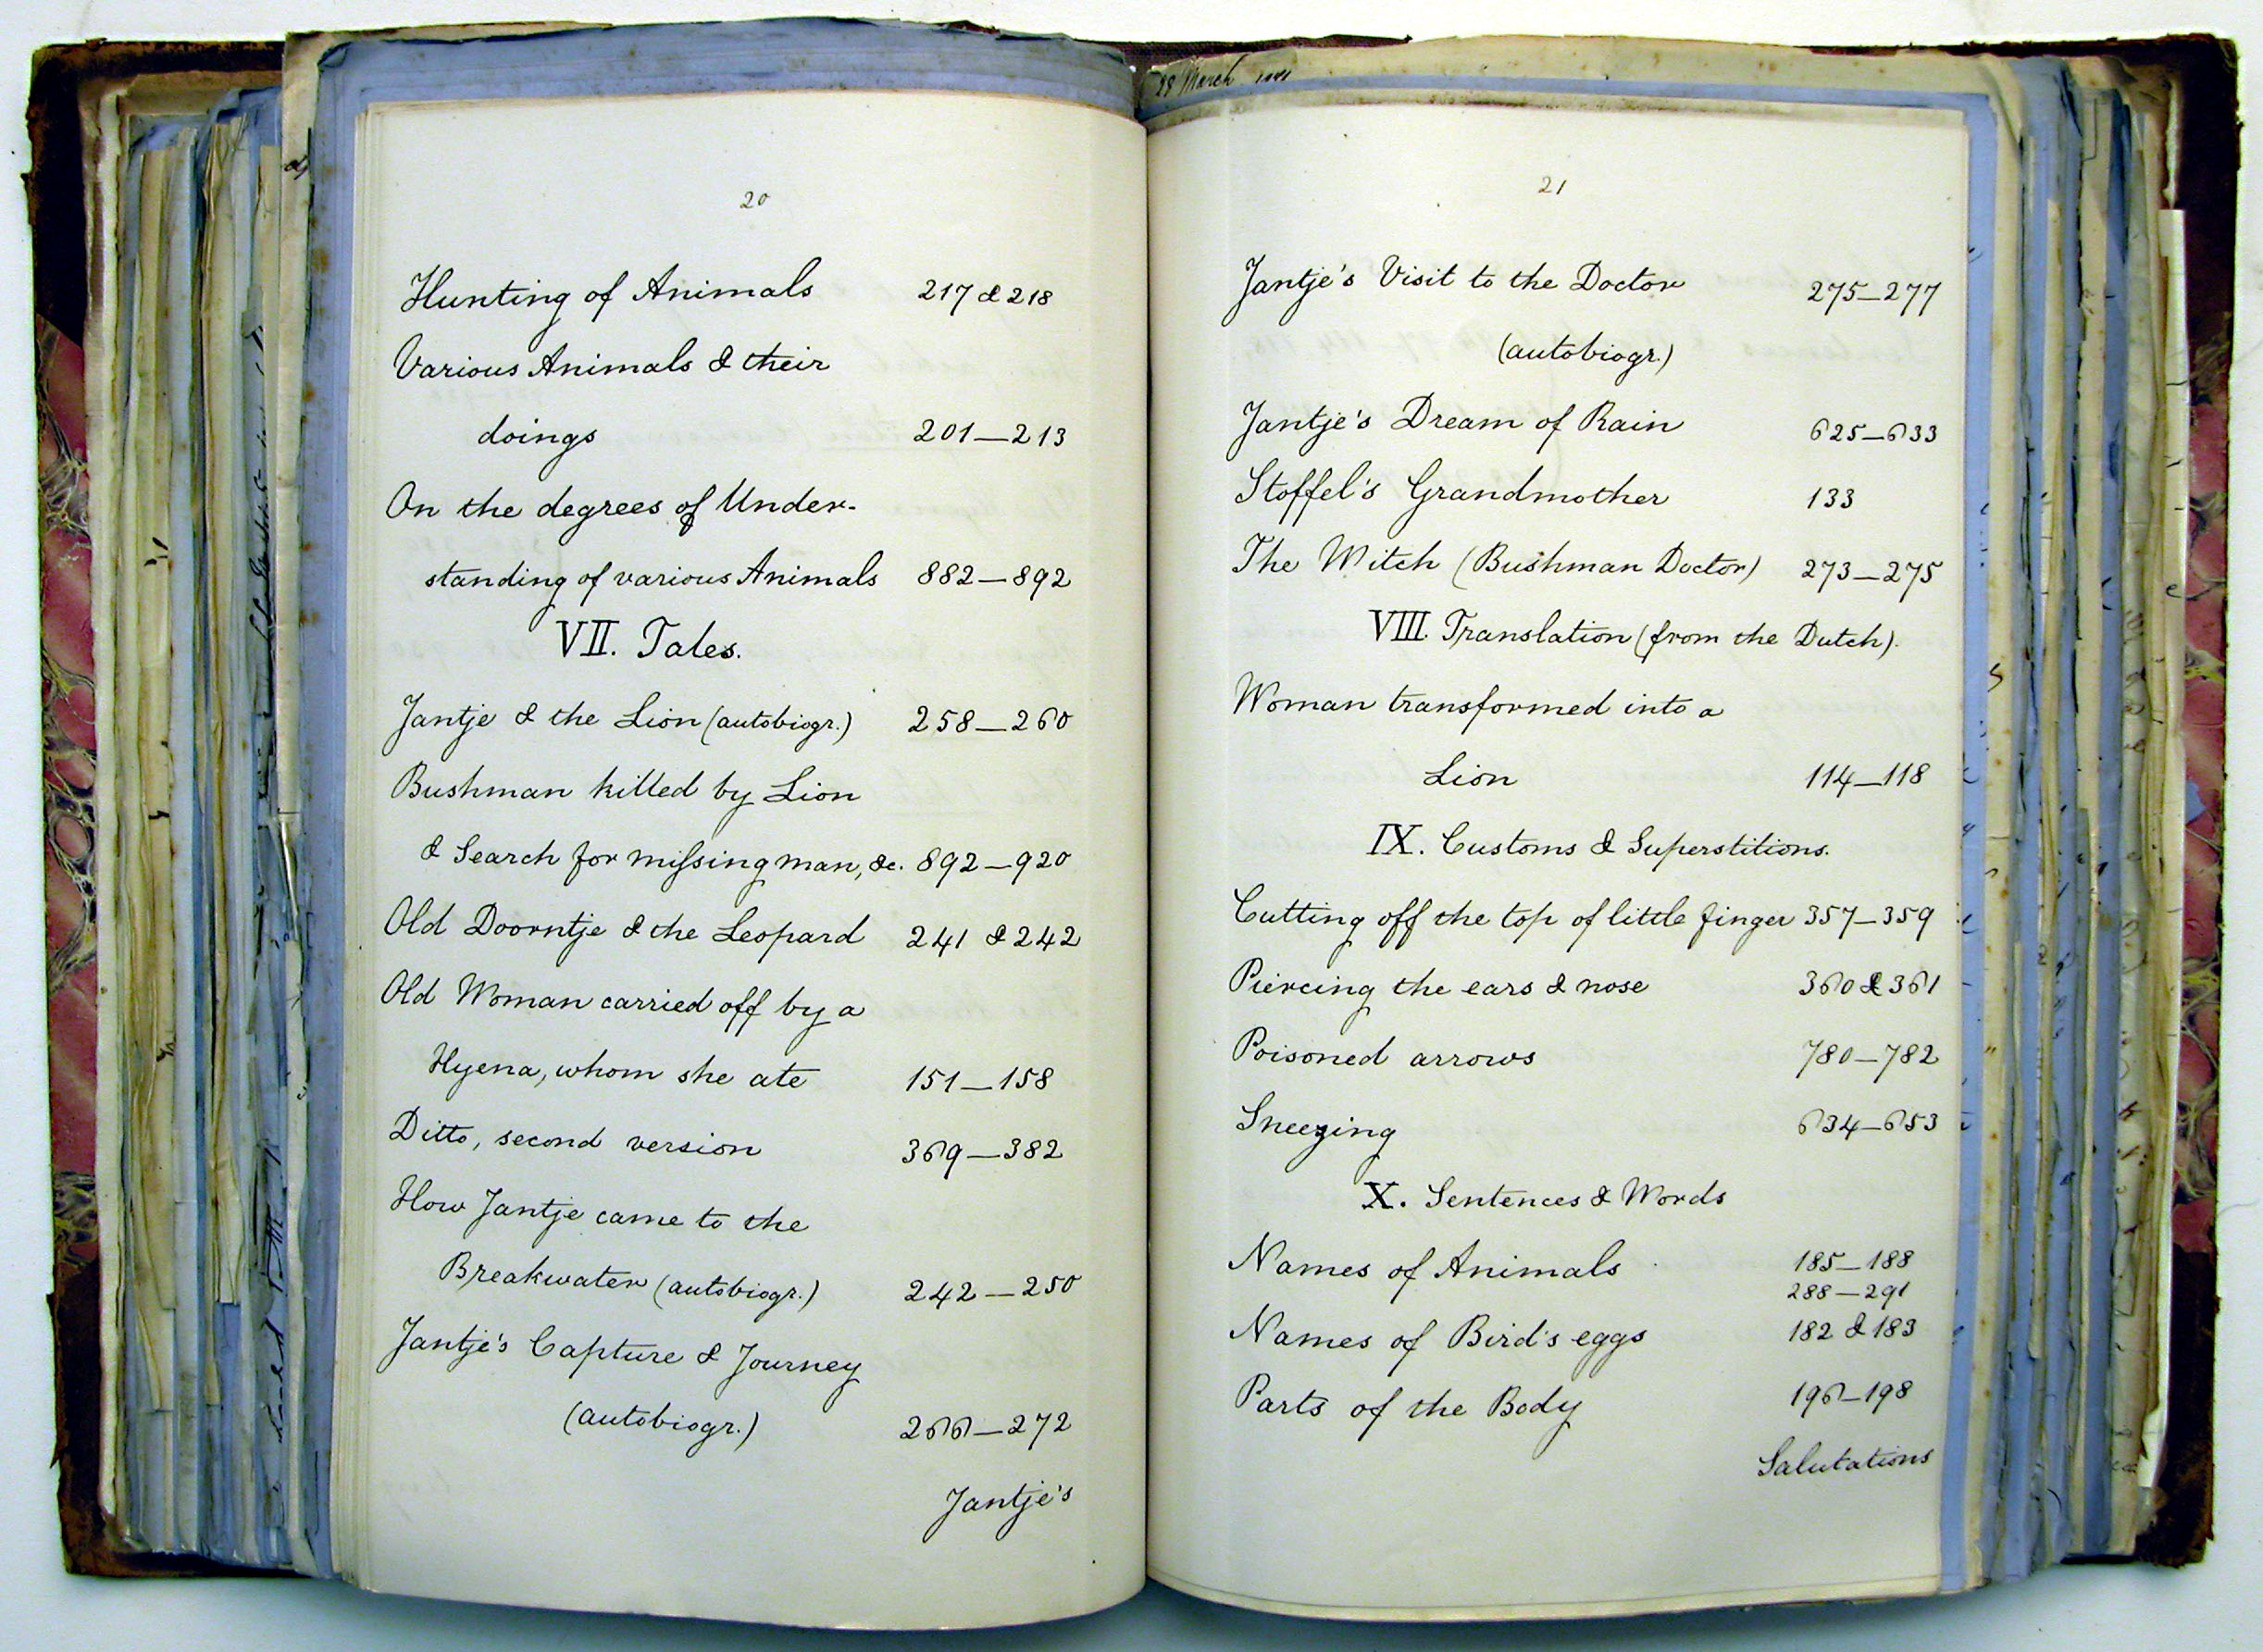 20
Hunting of Animals 217 & 218
Various Animals & their
doings 201—213
On the degrees of Under-
standing of various Animals 882—892
VII. Tales.
Jantje & the Lion (autobiogr.) 258—260
Bushman killed by Lion
& Search for missing man, &c. 892—920
Old Doorntje & the Leopard 241 & 242
Old Woman carried off by a
Hyena, whom she ate 151—158
Ditto, second version 369—382
How Jantje came to the
Breakwater (autobiogr.) 242—250
Jantje's Capture & Journey
(autobiogr.) 266—272
Jantje's
28 March
21
Jantje's Visit to the Doctor 275—277
(autobiogr.)
Jantje's Dream of Rain 625—633
Stoffel's Grandmother 133
The Witch (Bushman Doctor) 273—275
VIII. Translation (from the Dutch).
Woman transformed into a
Lion 114—118
IX. Customs & Superstitions.
Cutting off the top of little finger 357—359
Piercing the ears & nose 360 & 361
Poisoned arrows 780—782
Sneezing 634—653
X. Sentences & Words
Names of Animals 185—188
288—291
Names of Bird's eggs 182 & 183
Parts of the Body 196—198
Salutations